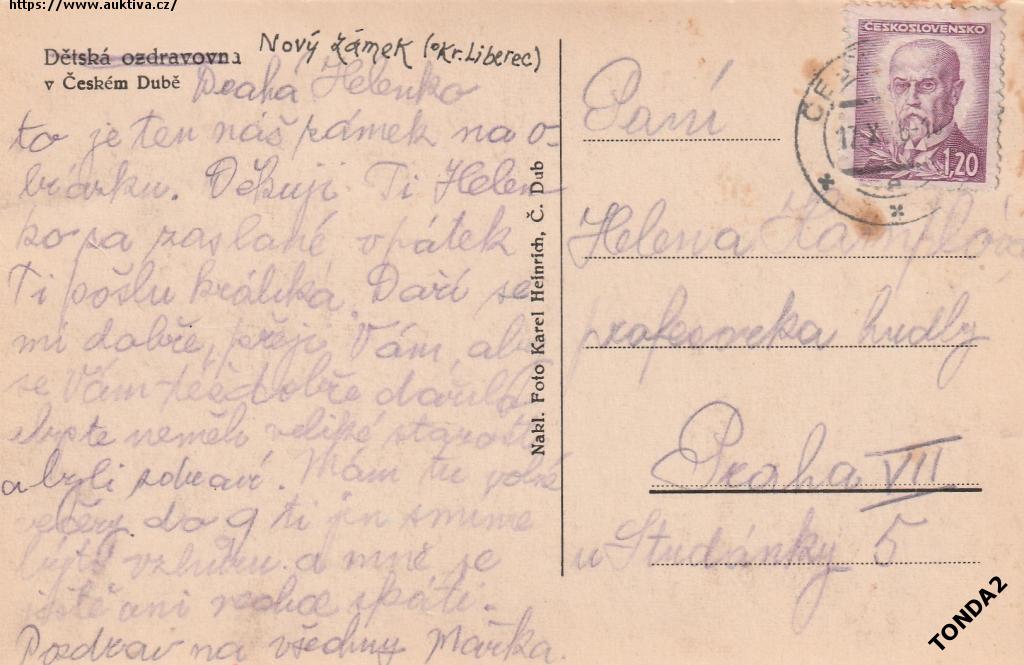 https://www.auktiva.cz/
Dětská ozdravovna
v Českém Dubě
Nový zámek (okr. Liberec)
Drahá Helenko
to je ten náš zámek na o-
brázku. Děkuji Ti Helen-
ko za zaslané opátek
Ti pošlu králíka. Daří se
mi dobře, přeji Vám, aby
se Vám též dobře dařilo
abyste neměli veliké starosti
a byli zdraví. Mám tu volné
večery do 9 ti jen smíme
býti vzhůru a mně se
ještě ani nechce spáti.
Pozdrav na všechny Mařka.
Nakl. Foto Karel Heinrich, Č. Dub
ČESKOSLOVENSKO
1,20
17.X
Paní
Helena
profesorka hudby
Praha VII
u Studánky 5
TONDA2